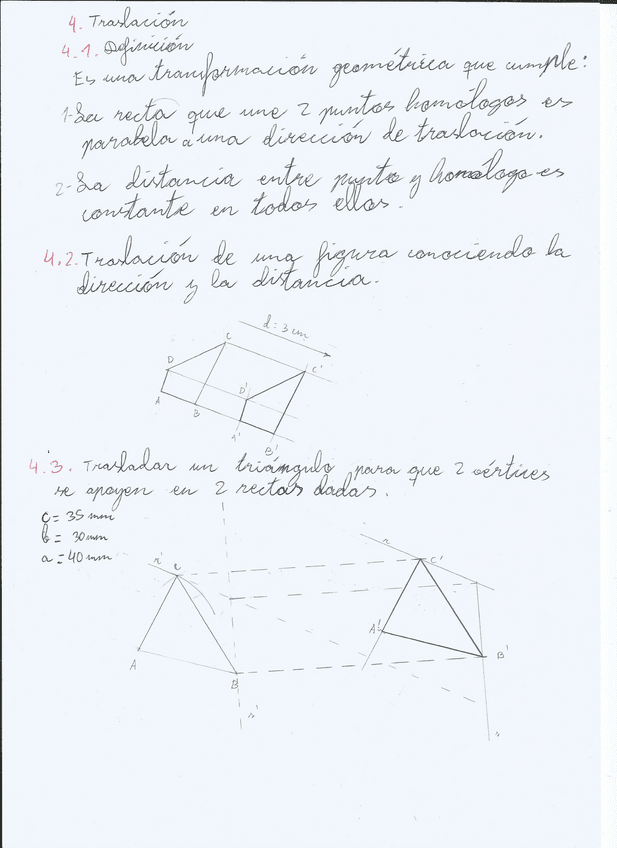 4. Traslación
4.1. Definición
Es una transformación geométrica que cumple:
1- La recta que une 2 puntos homólogos es
parabela a una dirección de traslación.
2- La distancia entre punto y homólogo es
constante en todos ellos.
4.2. Traslación de una figura conociendo la
dirección y la distancia.
d = 3 cm
C
C'
D
D'
A
B
A'
B'
4.3. Trasladar un triángulo para que 2 vértices
se apoyen en 2 rectas dadas.
c = 35 mm
b = 30 mm
a = 40 mm
r'
C
r
C'
A
A'
B
B'
s'
s